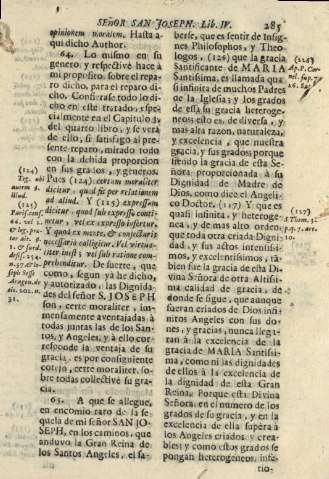 SEÑOR SAN JOSEPH. Lib. IV.
285
opinionem moralem. Hasta a-
qui dicho Author.
64. Lo mismo en su
genero, y respective hace à
mi proposito, sobre el repa-
ro dicho, para el reparo di-
cho. todo lo di-
cho en este tratado, y spe-
cialmente en el Capitulo
del quarto libro, y se verà
de ello, si satisfago al pre-
sente reparo, mirado todo
con la debida proporcion
en sus grados, y generos.
Pues (124) certum moraliter
dicitur, quod fit per relationem
ad aliud. Y (125) expressum
dicitur, quod sub expresso conti-
netur, vel ex expresso infertur.
Y quod ex morte, & consessarii
necessariò colligitur. Vel virtua-
liter inest, vel sub ratione com-
prehenditur. De suerte, que
como, segun yà he dicho,
y autorizado, las Dignida-
des del señor S. JOSEPH
son, certe moraliter, im-
mensamente aventajadas à
todas juntas las de los San-
tos, y Angeles, y à ello cor-
responde la ventaja de su
gracia, es por consiguiente
cotejo, certe moraliter, so-
bre todas collectivè su gra-
cia.
65. A que se allegue,
en encomio raro de la se-
quela de mi señor SAN JO-
SEPH, en los caminos, que
anduvo la Gran Reina de
los Santos Angeles, el sa-
(124)
(125)
31.
berse, que es sentir de Insig-
nes Philosophos, y Theo-
logos, (126) que la gracia
Santificante de MARIA
Santissima, es llamada qua-
si infinita de muchos Padres
de la Iglesia; y los grados
de esta su gracia heteroge-
neos; esto es, de diversa, y
mas alta razon, naturaleza,
y excelencia, que nuestra
gracia, y sus grados; porque
siendo la gracia de esta Se-
ñora proporcionada à su
Dignidad de Madre de
Dios, como dice el Angeli-
co Doctor. (127) Y que es
quasi infinita, y heteroge-
nea, y de mas alto orden,
que toda otra criada Digni-
dad, y sus actos intensissi-
mos, y excelentissimos, tam-
bien fue la gracia de esta Di-
vina Señora de otra Altissi-
ma calidad de gracia, de
donde se sigue, que aunque
fueran criados de Dios infi-
nitos Angeles con sus do-
nes, y gracias, nunca llega-
ràn à la excelencia de la
gracia de MARIA Santissi-
ma, como ni las dignidades
de ellos à la excelencia de
la dignidad de esta Gran
Reina. Porque esta Divina
Señora, en el numero de los
grados de su gracia, y en la
excelencia de ella supera à
los Angeles criados, y crea-
bles: y como estos grados se
pongan heterogeneos, infe-
rio-
(126)
(127)